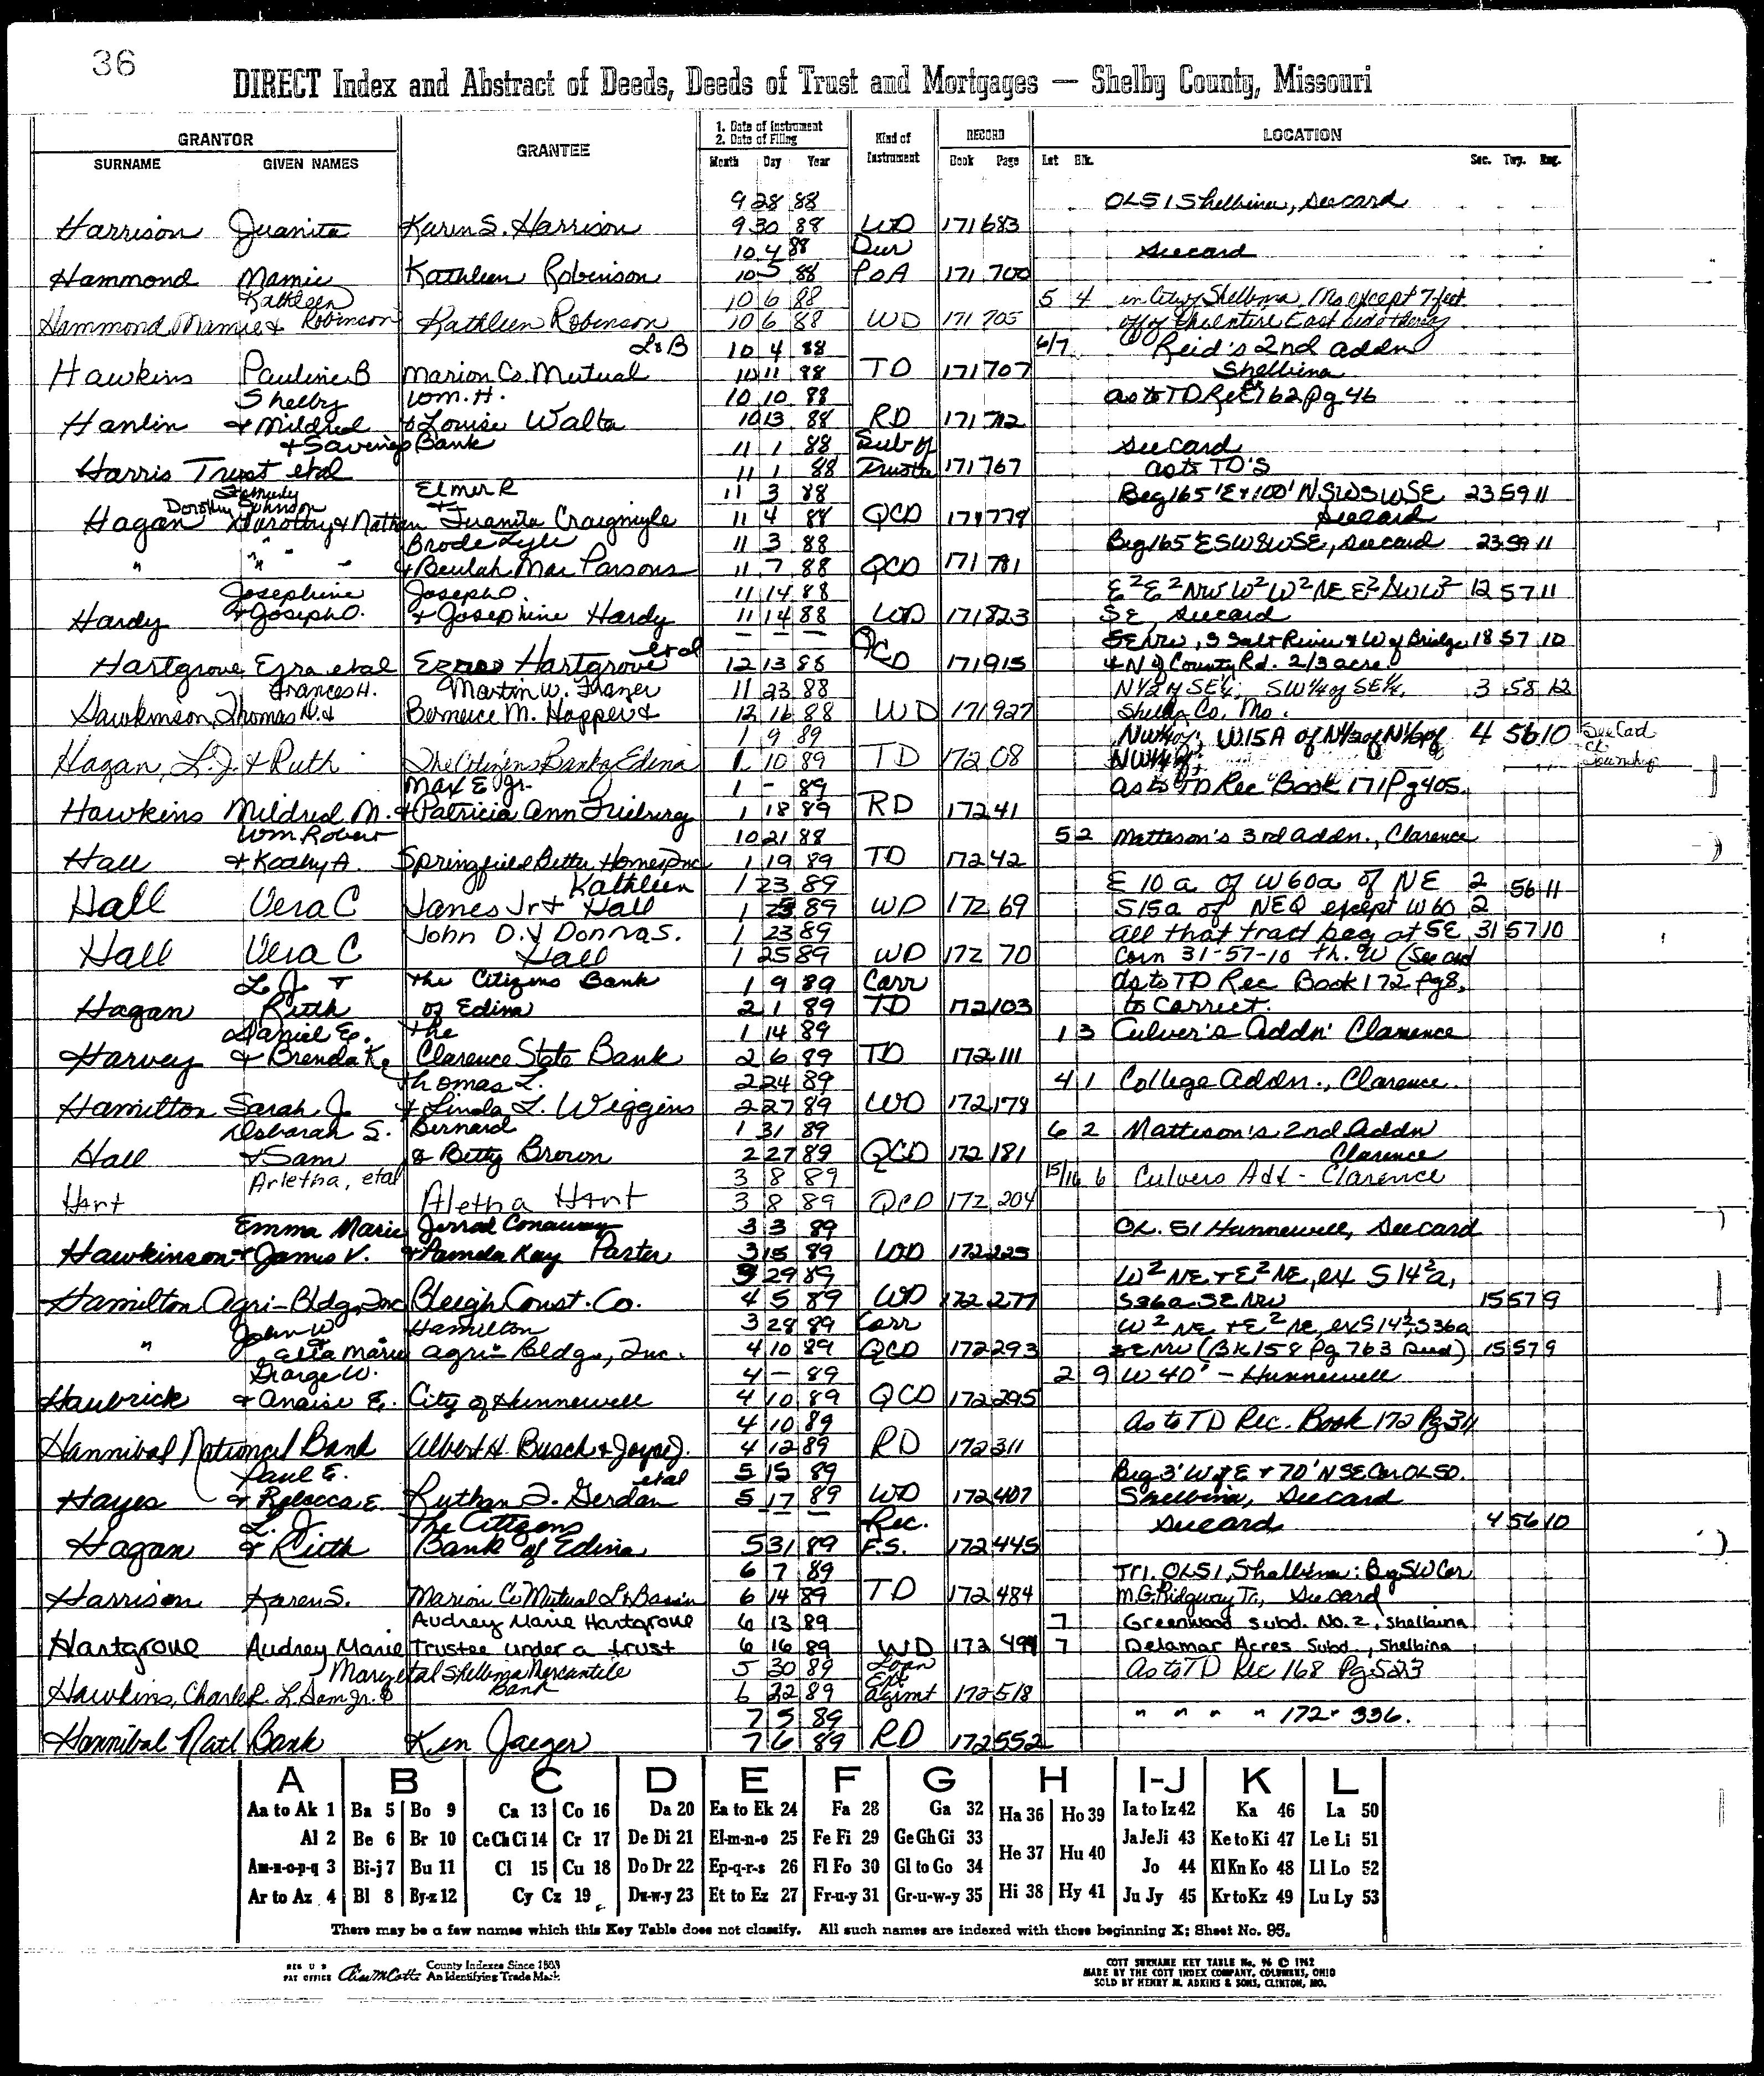 36
DIRECT Index and Abstract of Deeds, Deeds of Trust and Mortgages — Shelby County, Missouri
GRANTOR GRANTEE 1. Date of Instrument 2. Date of Filing Kind of Instrument RECORD LOCATION
SURNAME GIVEN NAMES Month Day Year Book Page Lot Blk. Sec. Twp. Rng.
9 28 88 OL51 Shelbina, See card
Harrison Juanita Karen S. Harrison 9 30 88 WD 171 683
10 4 88 Dur See card
Hammond Mamie Kathleen Robinson 10 5 88 PoA 171 700
Kathleen 10 6 88 5 4 in City of Shelbina, Mo except 7 feet
Hammond Mamie & Robinson Kathleen Robinson 10 6 88 WD 171 705 off of the entire East side thereof
L&B 10 4 88 6/7 Reid's 2nd addn
Hawkins Pauline B Marion Co. Mutual 10 11 88 TD 171 707 Shelbina
Shelby Wm. H. 10 10 88 as to TD Rec 162 pg 46
Hanlin & Mildred & Louise Walta 10 13 88 RD 171 712
& Savings Bank 11 1 88 Sub of See Card
Harris Trust etal 11 1 88 Trustee 171 767 as to TD'S
formerly Elmer R 11 3 88 Beg 165'E & 100'N SWSWSE 23 59 11
Dorothy Johnson
Hagan Dorothy & Nathan & Juanita Craigmyle 11 4 88 QCD 171 779 See card
" " - Brode Lyle 11 3 88 Beg 165'E SWSWSE, See card 23 59 11
" " - & Beulah Mae Parsons 11 7 88 QCD 171 781
Josephine Joseph O. 11 14 88 E²E²NW W²W²NE E²SWW² 12 57 11
Hardy & Joseph O. & Josephine Hardy 11 14 88 WD 171 823 SE, See card
— — — SENW, S Salt River & W of Bridge 18 57 10
Hartgrove Ezra etal Ezra Hartgrove etal 12 13 88 QCD 171 915 & N of County Rd. 2/3 acre
Frances H. Martin W. Frazier 11 23 88 N½ of SE¼; SW¼ of SE¼, 3 58 12
Hawkinson, Thomas N. & Berneice M. Happer & 12 16 88 WD 171 927 Shelby Co. Mo.
1 9 89 NW¼ of; W.15A of N½ of N½ of 4 56 10 See Card
Hagan, L.J. & Ruth The Citizens Bank of Edina 1 10 89 TD 172 08 NW¼ of
Max E Jr. 1 - 89 as to TD Rec Book 171 Pg 405.
Hawkins Mildred M. & Patricia Ann Frieberg 1 18 89 RD 172 41
Wm Robert 10 21 88 5 2 Matteson's 3rd addn., Clarence
Hall & Kathy A. Springfield Better Homes Inc 1 19 89 TD 172 42
Kathleen 1 23 89 E 10 a of W 60a of NE 2 56 11
Hall Vera C James Jr & Hall 1 25 89 WD 172 69 S15a of NEQ except W 60 2
John D. & Donna S. 1 23 89 all that tract beg at SE 31 57 10
Hall Vera C Hall 1 25 89 WD 172 70 Corn 31-57-10 th. W (See card
L. J. & The Citizens Bank 1 9 89 Corr As to TD Rec Book 172 pg 8,
Hagan Ruth of Edina 2 1 89 TD 172 103 to Correct.
Daniel E. The 1 14 89 1 3 Culver's Addn Clarence
Harvey & Brenda K. Clarence State Bank 2 6 89 TD 172 111
Thomas L. 2 24 89 4 1 College Addn., Clarence.
Hamilton Sarah J. & Linda L. Wiggins 2 27 89 WD 172 178
Deborah S. Bernard 1 31 89 6 2 Matteson's 2nd Addn
Hall & Sam & Betty Brown 2 27 89 QCD 172 181 Clarence
Arletha, etal 3 8 89 15/16 6 Culvers Add - Clarence
Hart Aletha Hart 3 8 89 QCD 172 204
Emma Marie Jerrod Conaway 3 3 89 OL. 51 Hunnewell, See card
Hawkinson & James V. & Pamela Kay Parter 3 15 89 WD 172 225
3 29 89 W²NE & E²NE, ex S 14²a,
Hamilton Agri-Bldg, Inc Bleigh Const. Co. 4 5 89 WD 172 277 S36a SENW 15 57 9
John W Hamilton 3 28 89 Corr W²NE & E²NE, ex S14², S36a
" & Etta Marie Agri-Bldg., Inc. 4 10 89 QCD 172 293 SENW (BK 158 Pg 763 Deed) 15 57 9
George W. 4 — 89 2 9 W 40' - Hunnewell
Haubrick & Anaise E. City of Hunnewell 4 10 89 QCD 172 295
4 10 89 As to TD Rec. Book 172 Pg 311
Hannibal National Bank Albert H. Busch & Joyce J. 4 12 89 RD 172 311
Paul E. etal 5 15 89 Beg 3'W of E & 70'N SE Cor OL50.
Hayes & Rebecca E. Ruthan I. Gerdan 5 17 89 WD 172 407 Shelbina, See card
L. J. The Citizens — — Rec. See card 4 56 10
Hagan & Ruth Bank of Edina 5 31 89 F.S. 172 445
6 7 89 Tr1. OL51, Shelbina: Beg SW Cor
Harrison Karen S. Marion Co Mutual L & B assn 6 14 89 TD 172 484 M.G. Ridgway Tr., See card
Audrey Marie Hartgrove 6 13 89 7 Greenwood subd. No. 2, Shelbina
Hartgrove Audrey Marie Trustee under a trust 6 16 89 WD 172 499 7 Delamar Acres Subd., Shelbina
Mary etal Shelbina Mercantile 5 30 89 Loan As to TD Rec 168 Pg 523
Hawkins, Charles R. L. Sam Jr. & Bank 6 22 89 Ext agrmt 172 518
7 5 89 " " " " 172 - 336.
Hannibal Natl Bank Ken Jaeger 7 6 89 RD 172 552
A B C D E F G H I-J K L
Aa to Ak 1 Ba 5 Bo 9 Ca 13 Co 16 Da 20 Ea to Ek 24 Fa 28 Ga 32 Ha 36 Ho 39 Ia to Iz 42 Ka 46 La 50
Al 2 Be 6 Br 10 Ce Ch Ci 14 Cr 17 De Di 21 El-m-n-o 25 Fe Fi 29 Ge Gh Gi 33 He 37 Hu 40 Ja Je Ji 43 Ke to Ki 47 Le Li 51
Am-n-o-p-q 3 Bi-j 7 Bu 11 Cl 15 Cu 18 Do Dr 22 Ep-q-r-s 26 Fl Fo 30 Gl to Go 34 Jo 44 Kl Kn Ko 48 Ll Lo 52
Ar to Az 4 Bl 8 By-z 12 Cy Cz 19 Du-w-y 23 Et to Ez 27 Fr-u-y 31 Gr-u-w-y 35 Hi 38 Hy 41 Ju Jy 45 Kr to Kz 49 Lu Ly 53
There may be a few names which this Key Table does not classify. All such names are indexed with those beginning X; Sheet No. 95.
REG U S PAT OFFICE County Indexes Since 1888 An Identifying Trade Mark
COTT SURNAME KEY TABLE No. 96 © 1962
MADE BY THE COTT INDEX COMPANY, COLUMBUS, OHIO
SOLD BY HENRY M. ADKINS & SONS, CLINTON, MO.